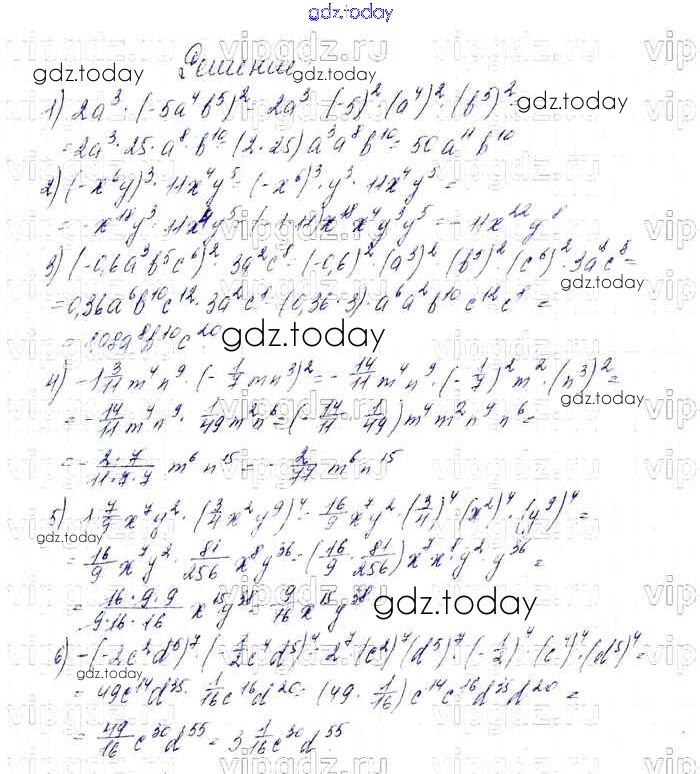 gdz.today
Решение
1) 2a³·(-5a⁴b⁵)² = 2a³·(-5)²·(a⁴)²·(b⁵)² =
= 2a³·25·a⁸·b¹⁰ = (2·25)a³a⁸b¹⁰ = 50a¹¹b¹⁰
2) (-x⁶y)³·11x⁴y⁵ = (-x⁶)³·y³·11x⁴y⁵ =
= -x¹⁸y³·11x⁴y⁵ = (-1·11)x¹⁸x⁴y³y⁵ = -11x²²y⁸
3) (-0,6a³b⁵c⁶)²·3a²c⁸ = (-0,6)²·(a³)²·(b⁵)²·(c⁶)²·3a²c⁸ =
= 0,36a⁶b¹⁰c¹²·3a²c⁸ = (0,36·3)·a⁶a²b¹⁰c¹²c⁸ =
= 1,08a⁸b¹⁰c²⁰
4) -1 3/11 m⁴n⁹·(-1/7 mn³)² = -14/11 m⁴n⁹·(-1/7)²m²·(n³)² =
= -14/11 m⁴n⁹·1/49 m²n⁶ = (-14/11·1/49)m⁴m²n⁹n⁶ =
= -2·7/11·7·7 m⁶n¹⁵ = -2/77 m⁶n¹⁵
5) 1 7/9 x⁷y²·(3/4 x²y⁹)⁴ = 16/9 x⁷y²·(3/4)⁴·(x²)⁴·(y⁹)⁴ =
= 16/9 x⁷y²·81/256 x⁸y³⁶ = (16/9·81/256)x⁷x⁸y²·y³⁶ =
= 16·9·9/9·16·16 x¹⁵y³⁸ = 9/16 x¹⁵y³⁸
6) -(-2c²d⁵)⁷·(-1/2 c⁴d⁵)⁴ = 2⁷·(c²)⁷(d⁵)⁷·(-1/2)⁴·(c⁴)⁴·(d⁵)⁴ =
= 49c¹⁴d³⁵·1/16 c¹⁶d²⁰ = (49·1/16)c¹⁴c¹⁶d³⁵d²⁰ =
= 49/16 c³⁰d⁵⁵ = 3 1/16 c³⁰d⁵⁵.